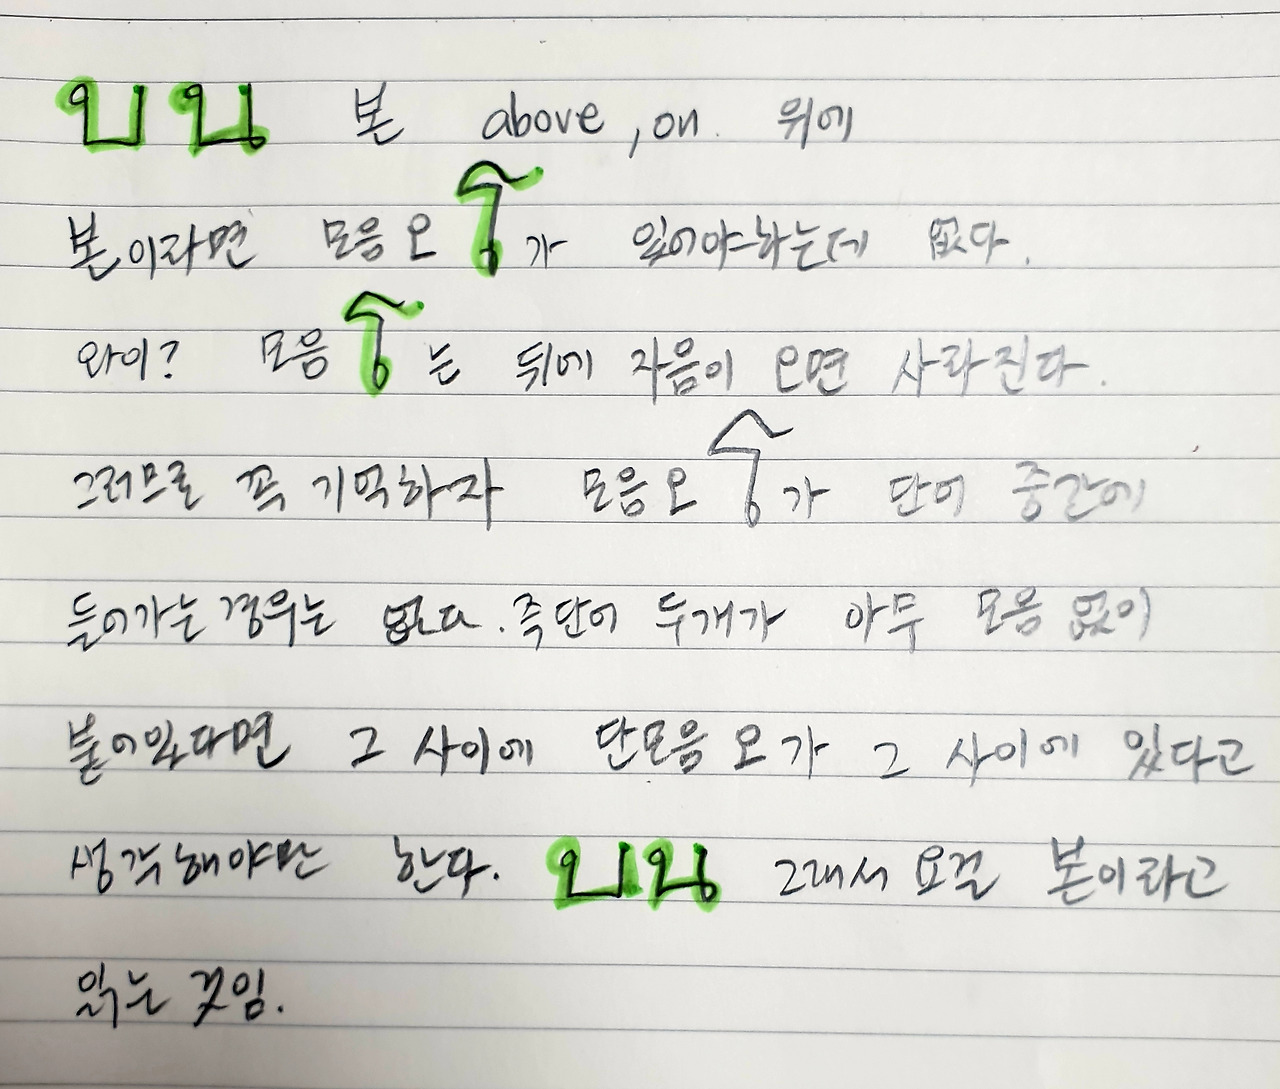 บน 본 above, on. 위에
본이라면 모음 오 โ가 있어야하는데 없다.
와이? 모음 โ는 뒤에 자음이 오면 사라진다.
그러므로 꼭 기억하자 모음 오 โ가 단어 중간에
들어가는 경우는 없다. 즉 단어 두개가 아무 모음 없이
붙어있다면 그 사이에 단모음 오가 그 사이에 있다고
생각해야만 한다. บน 그래서 요걸 본이라고
읽는 것임.